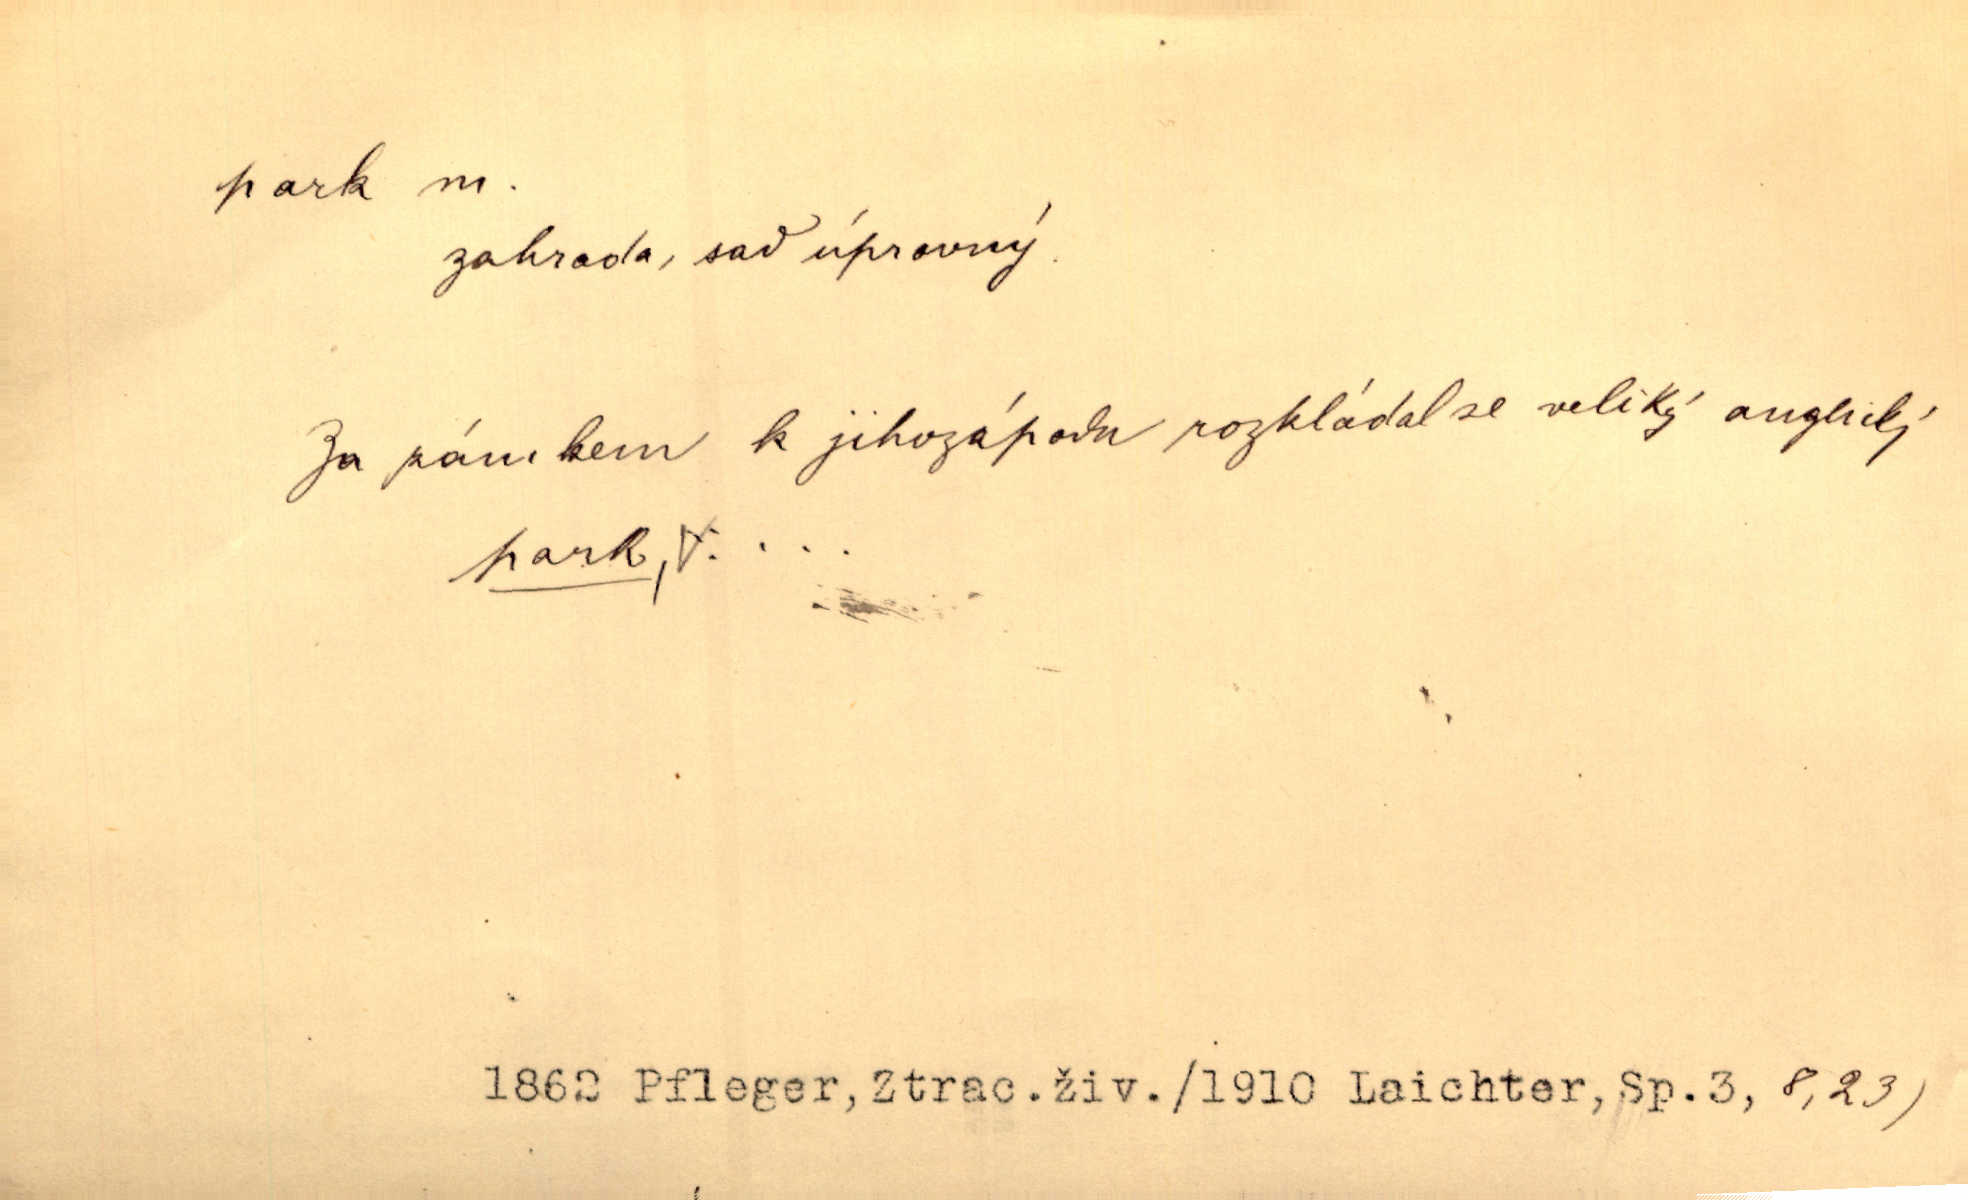 park m.
zahrada, sad úpravný.
Za zámkem k jihozápadu rozkládal se veliký anglický
park, . . . .
1862 Pfleger,Ztrac.živ./1910 Laichter,Sp.3, 8,23)